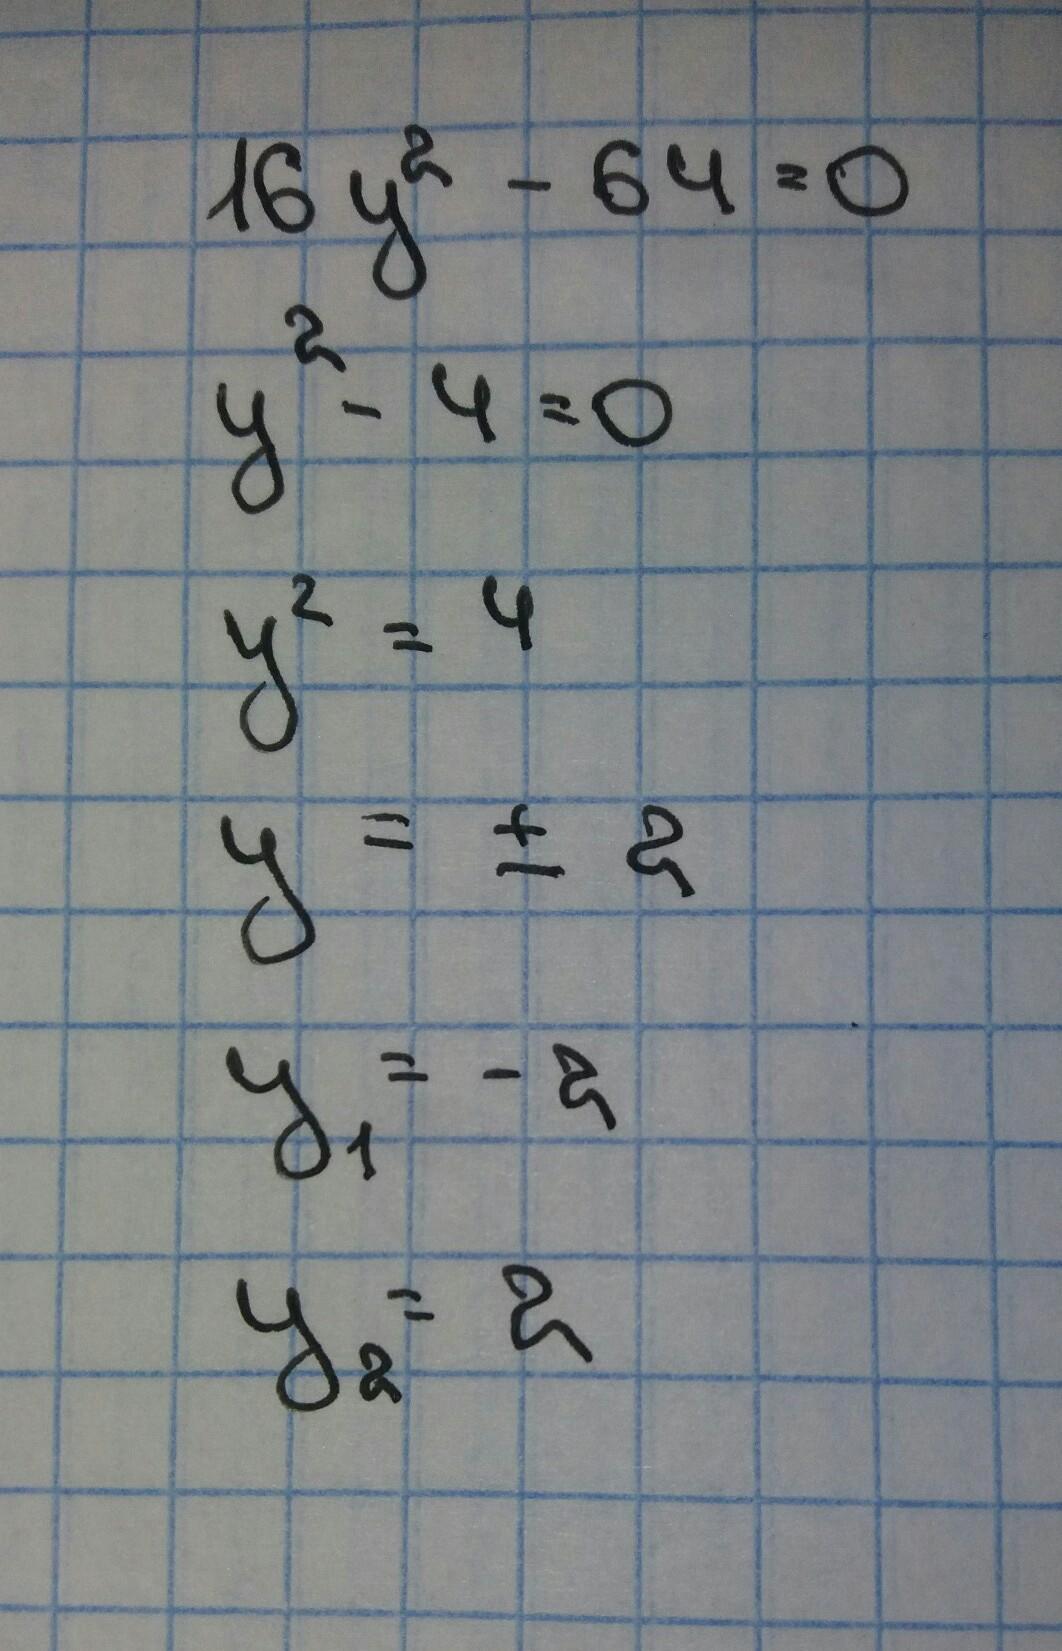 16y² - 64 = 0
y² - 4 = 0
y² = 4
y = ± 2
y₁ = - 2
y₂ = 2